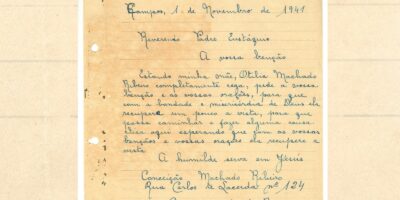 Campos, 1 de Novembro de 1941
Reverendo Padre Eustáquio
A vossa benção
Estando minha mãe, Otilia Machado
Ribeiro completamente cega, pede a vossa
benção e as vossas orações, para que
com a bondade e misericórdia de Deus ela
recupere um pouco a vista, para que
possa caminhar e fazer alguma cousa.
Fico aqui esperando que com as vossas
bençãos e vossas orações ela recupere a
vista
A humilde serva em Jesus
Conceição Machado Ribeiro
Rua Carlos de Lacerda nº 124